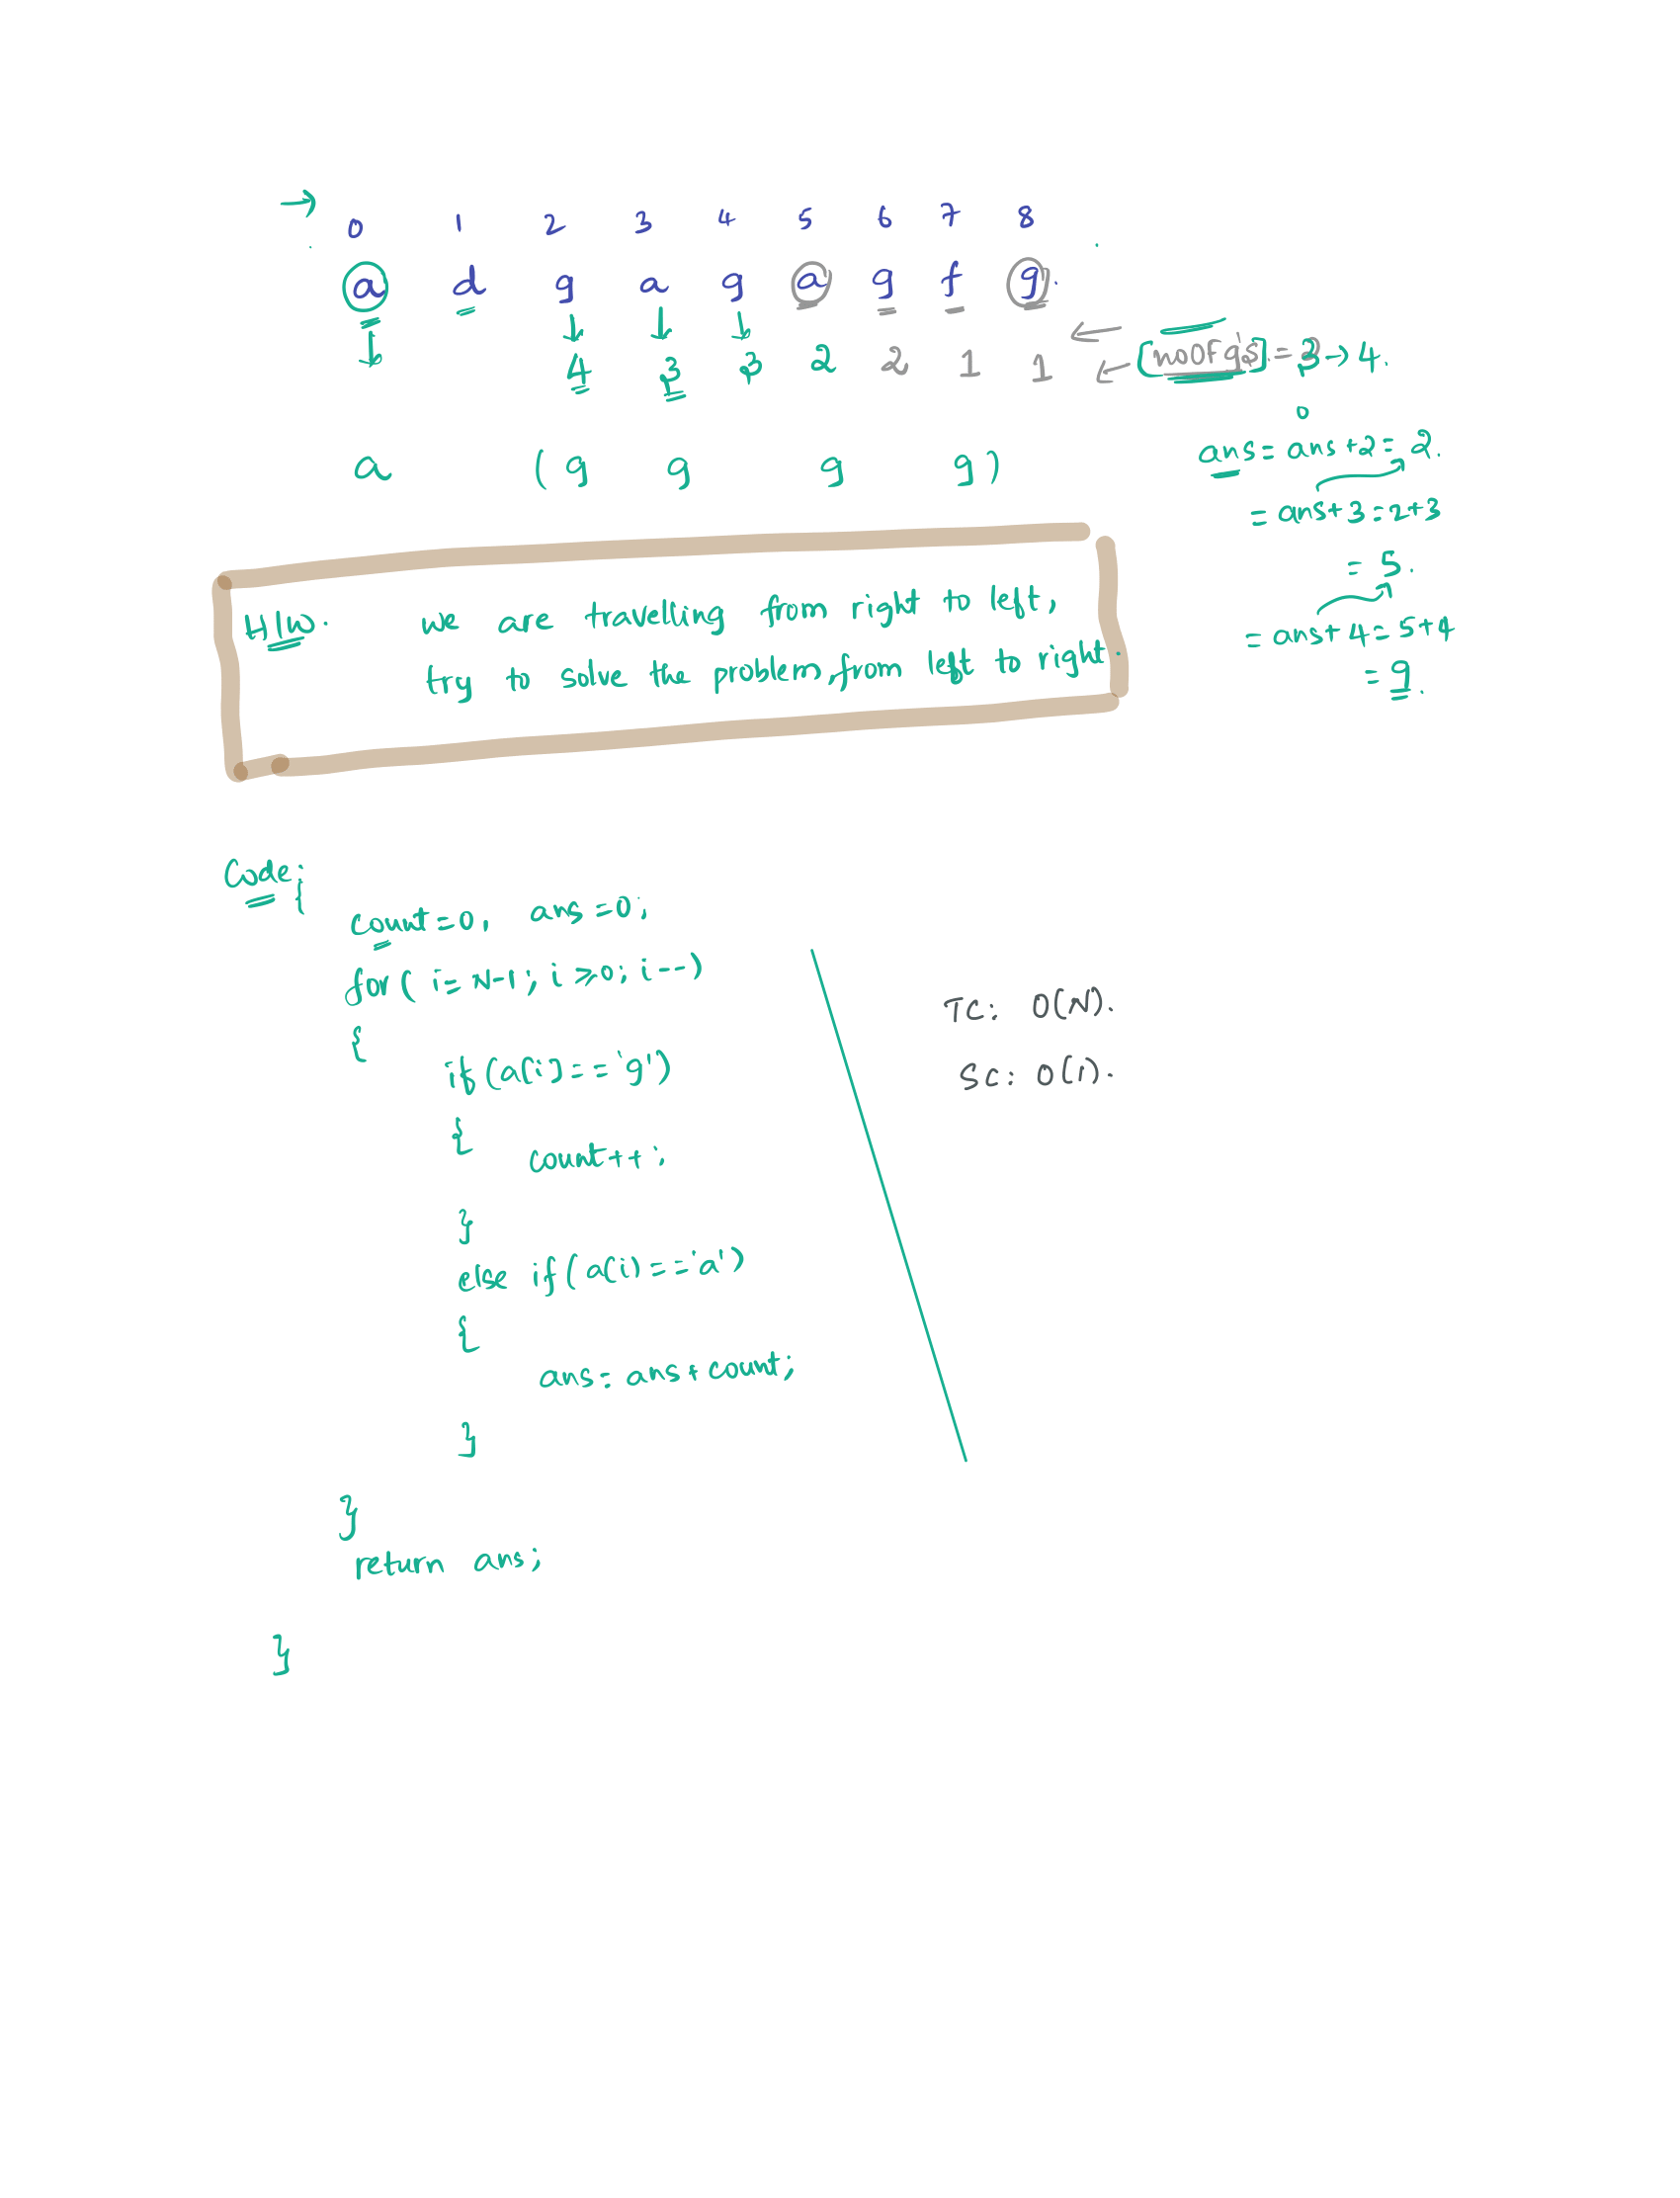 → 0 1 2 3 4 5 6 7 8
a d g a g a g f g.
↓ ↓ ↓ ↓
4 3 3 2 2 1 1 ← ← [no of g's] = 3 → 4.
a (g g g g)
0
ans = ans+2 = 2.
= ans+3 = 2+3
= 5.
= ans+4 = 5+4
= 9.
H/W. we are travelling from right to left,
try to solve the problem, from left to right.
Code;
{
count=0, ans=0;
for( i= N-1; i ≥0; i--)
{
if (a[i] == 'g')
{
count++;
}
else if (a(i) == 'a')
{
ans= ans+count;
}
}
return ans;
}
TC: O(N).
SC: O(1).